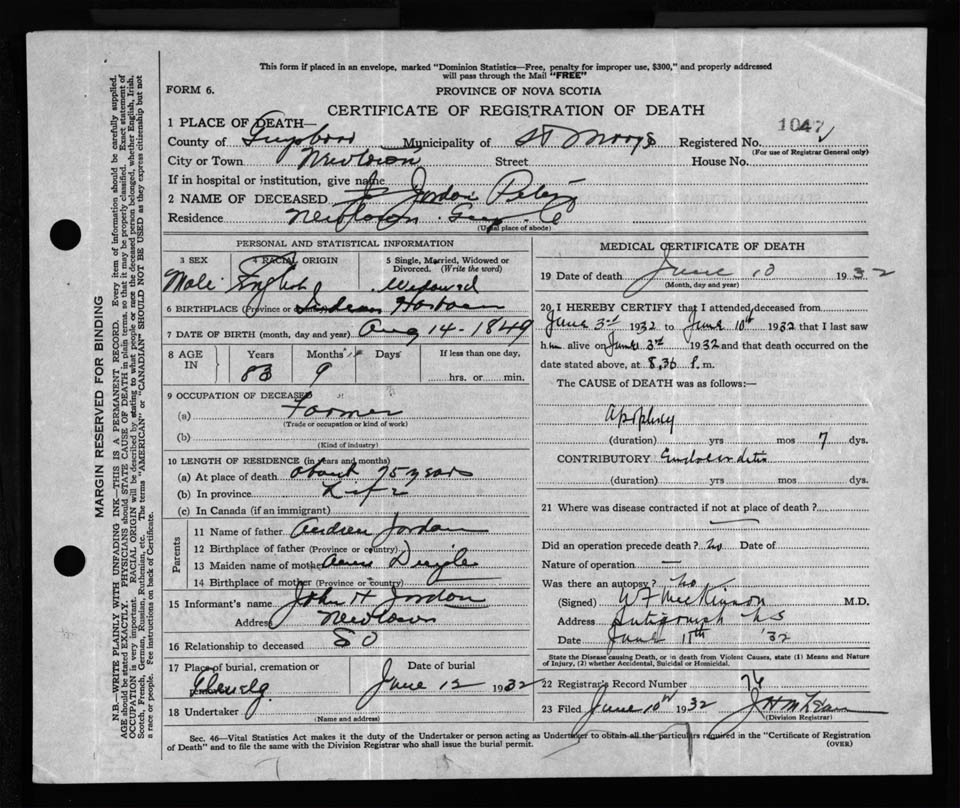 This form if placed in an envelope, marked "Dominion Statistics—Free, penalty for improper use, $300," and properly addressed
will pass through the Mail "FREE"
FORM 6.
PROVINCE OF NOVA SCOTIA
CERTIFICATE OF REGISTRATION OF DEATH
1042
1 PLACE OF DEATH—
County of Guysboro Municipality of St Marys Registered No.
(For use of Registrar General only)
City or Town Newtown Street House No.
If in hospital or institution, give name
2 NAME OF DECEASED Jordan Peter
Residence Newtown Guy. Co
(Usual place of abode)
PERSONAL AND STATISTICAL INFORMATION
3 SEX 4 RACIAL ORIGIN 5 Single, Married, Widowed or Divorced. (Write the word)
Male English Widowed
6 BIRTHPLACE (Province or Indian Harbour
7 DATE OF BIRTH (month, day and year) Aug 14-1849
8 AGE IN Years Months Days If less than one day,
83 9 hrs. or min.
9 OCCUPATION OF DECEASED
(a) Farmer
(Trade or occupation or kind of work)
(b)
(Kind of industry)
10 LENGTH OF RESIDENCE (in years and months)
(a) At place of death about 75 years
(b) In province Life
(c) In Canada (if an immigrant)
Parents
11 Name of father Andrew Jordan
12 Birthplace of father (Province or country)
13 Maiden name of mother
14 Birthplace of mother (Province or country)
15 Informant's name John H Jordan
Address Newtown
16 Relationship to deceased SO
17 Place of burial, cremation or removal Date of burial
Glenelg June 12 1932
18 Undertaker
(Name and address)
MEDICAL CERTIFICATE OF DEATH
19 Date of death June 10 1932
(Month, day and year)
20 I HEREBY CERTIFY that I attended deceased from
June 3rd 1932 to June 10th 1932 that I last saw
him alive on June 3rd 1932 and that death occurred on the
date stated above, at 8.30 P. m.
The CAUSE of DEATH was as follows:—
Apoplexy
(duration) yrs mos 7 dys.
CONTRIBUTORY Endocarditis
(duration) yrs mos dys.
21 Where was disease contracted if not at place of death?
Did an operation precede death? No Date of
Nature of operation —
Was there an autopsy? No
(Signed) W F McKinnon M.D.
Address Antigonish N S
Date June 11th '32
State the Disease causing Death, or in death from Violent Causes, state (1) Means and Nature
of Injury, (2) whether Accidental, Suicidal or Homicidal.
22 Registrar's Record Number 76
23 Filed June 10th 1932
(Division Registrar)
Sec. 46—Vital Statistics Act makes it the duty of the Undertaker or person acting as Undertaker to obtain all the particulars required in the "Certificate of Registration
of Death" and to file the same with the Division Registrar who shall issue the burial permit.
(OVER)
MARGIN RESERVED FOR BINDING
N.B.—WRITE PLAINLY WITH UNFADING INK—THIS IS A PERMANENT RECORD. Every item of information should be carefully supplied.
AGE should be stated EXACTLY. PHYSICIANS should STATE CAUSE OF DEATH in plain terms, so that it may be properly classified. Exact statement of
OCCUPATION is very important. RACIAL ORIGIN will be described by stating to what people or race the deceased person belonged, whether English, Irish,
Scotch, French, German, Russian, Ruthenian, etc. The terms "AMERICAN" or "CANADIAN" SHOULD NOT BE USED as they express citizenship but not
a race or people. See instructions on back of Certificate.